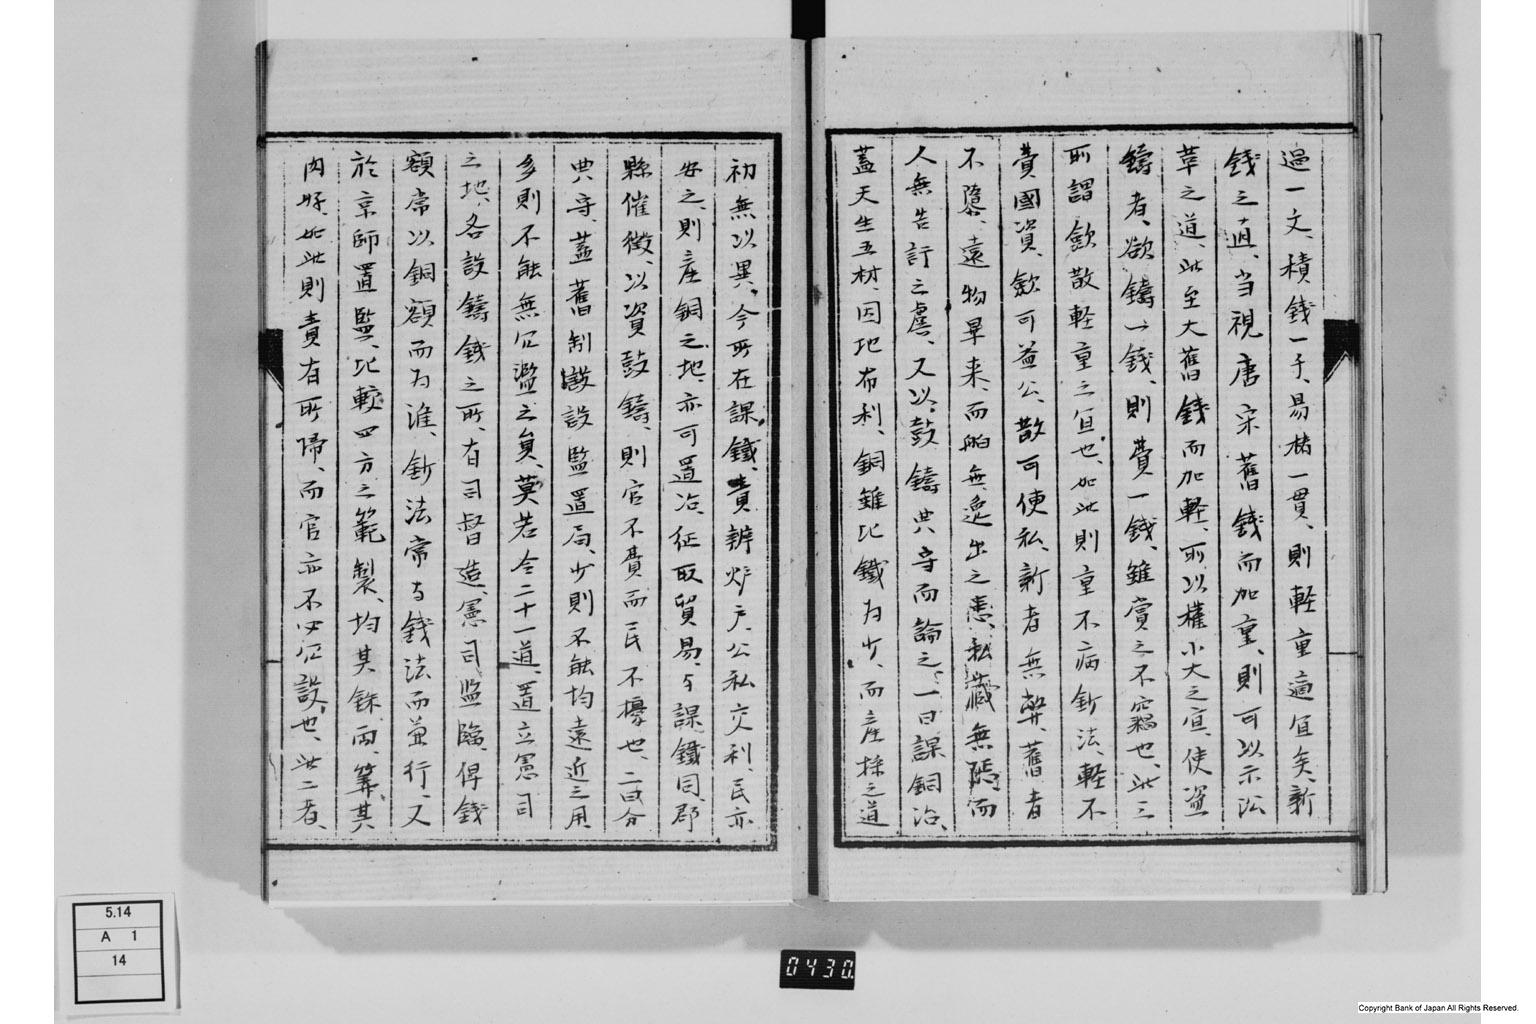 過一文、積錢一千、易楮一貫、則輕重適宜矣、新
錢之直、当視唐宋舊錢而加重、則可以示沿
革之道、此至大舊錢而加輕、所以權小大之宜、使盗
鑄者、欲鑄一錢、則費一錢、雖賞之不竊也、此三
所謂歛散軽重之宜也、如此則重不病新法、軽不
費國資、歛可益公、散可使私、新者無弊、舊者
不隱、遠物畢来、而舶無逸出之患、私藏無焉而
人無告訐之虐、又以鼓鑄典守而論之、一曰課銅冶、
蓋天生五材、因地布利、銅雖比鐵为少、而産採之道
初無以異、今所在課鐵、責辨炉戸、公私交利、民亦
安之、則産銅之地、亦可置冶、征取貿易、与課鐵同、郡
縣催徴、以資鼓鑄、則官不費而民不擾也、二曰分
典守、蓋舊制設監置局、少則不能均遠近之用、
多則不能無冗濫之員、莫若令二十一道、置立憲司
之地、各設鑄錢之所、有司督造、憲司监臨、俾錢
額常以銅額而为准、鈔法常与錢法而兼行、又
於京師置監、比較四方之範製、均其銖両、筭其
肉好、如此則責有所帰、而官亦不必冗設也、此二者、
5.14
A 1
14
0430
Copyright Bank of Japan All Rights Reserved.